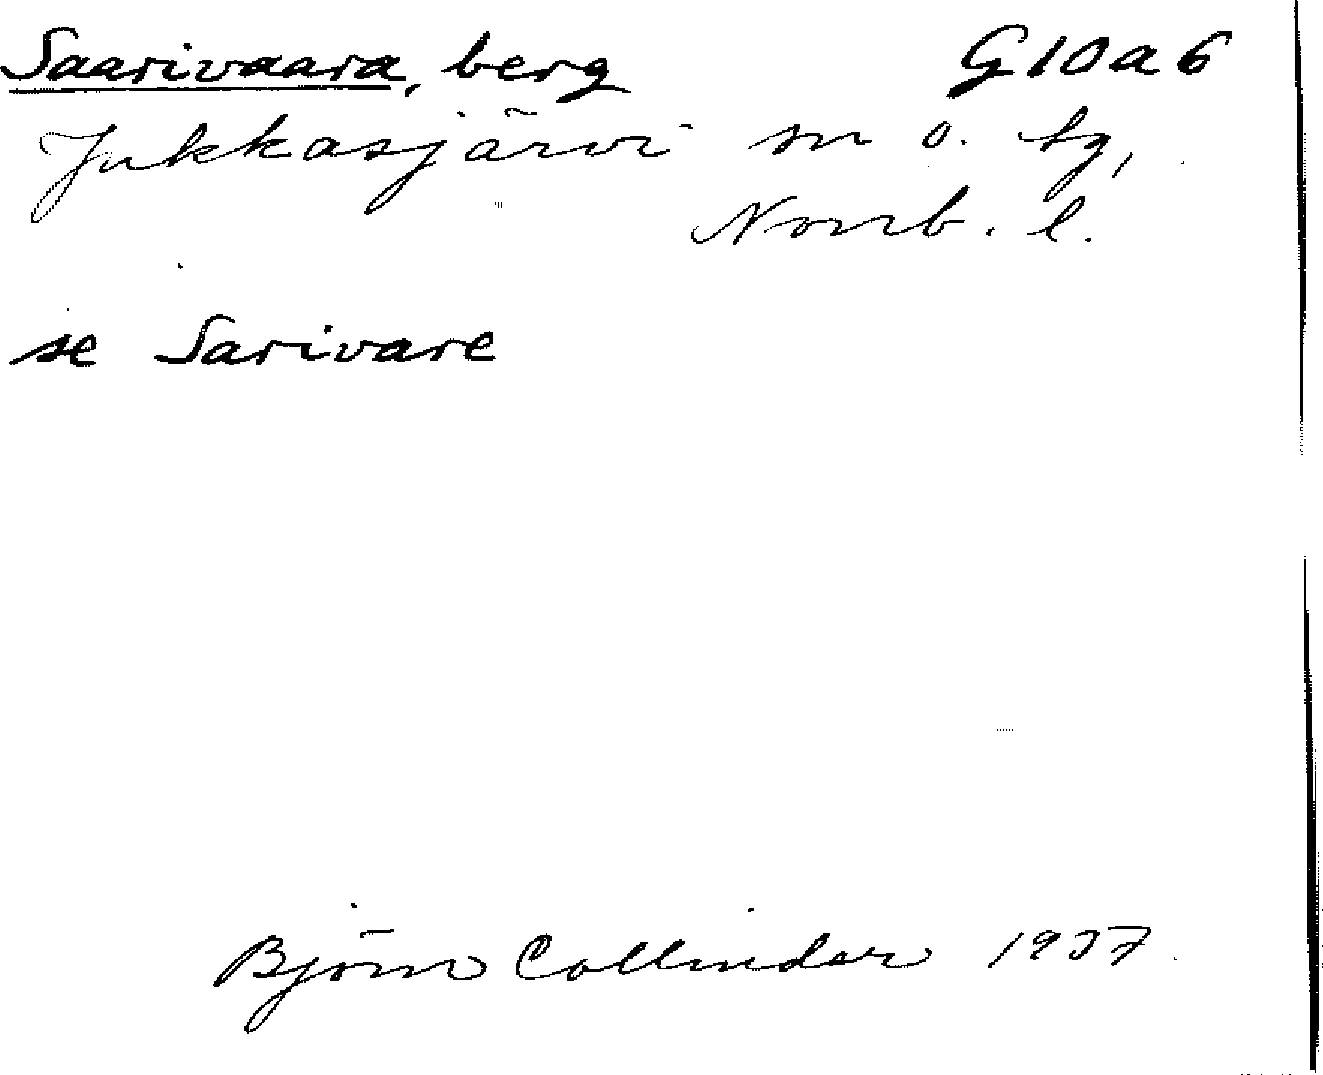 Saarivaara, berg G10a6
Jukkasjärvi sn o. tg,
Norrb. l.
se Sarivare
Björn Collinder 1937